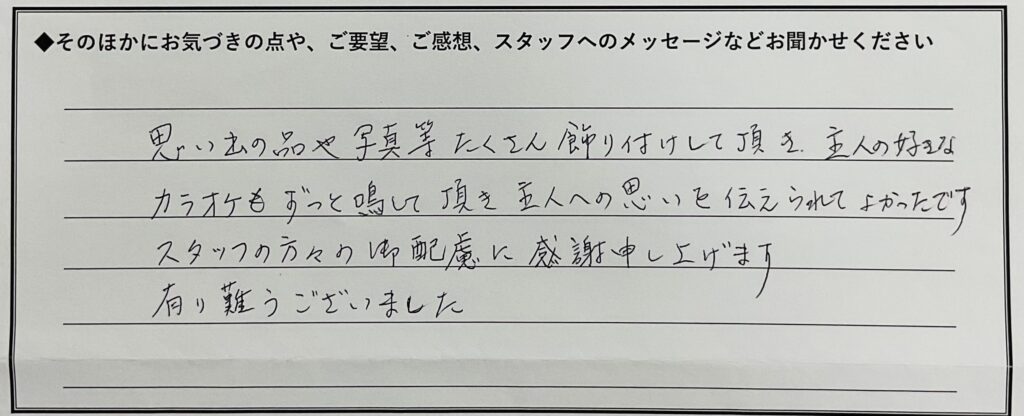 ◆そのほかにお気づきの点や、ご要望、ご感想、スタッフへのメッセージなどお聞かせください
思い出の品や写真等たくさん飾り付けして頂き、主人の好きな
カラオケもずっと鳴して頂き主人への思いを伝えられてよかったです
スタッフの方々の御配慮に感謝申し上げます
有り難うございました